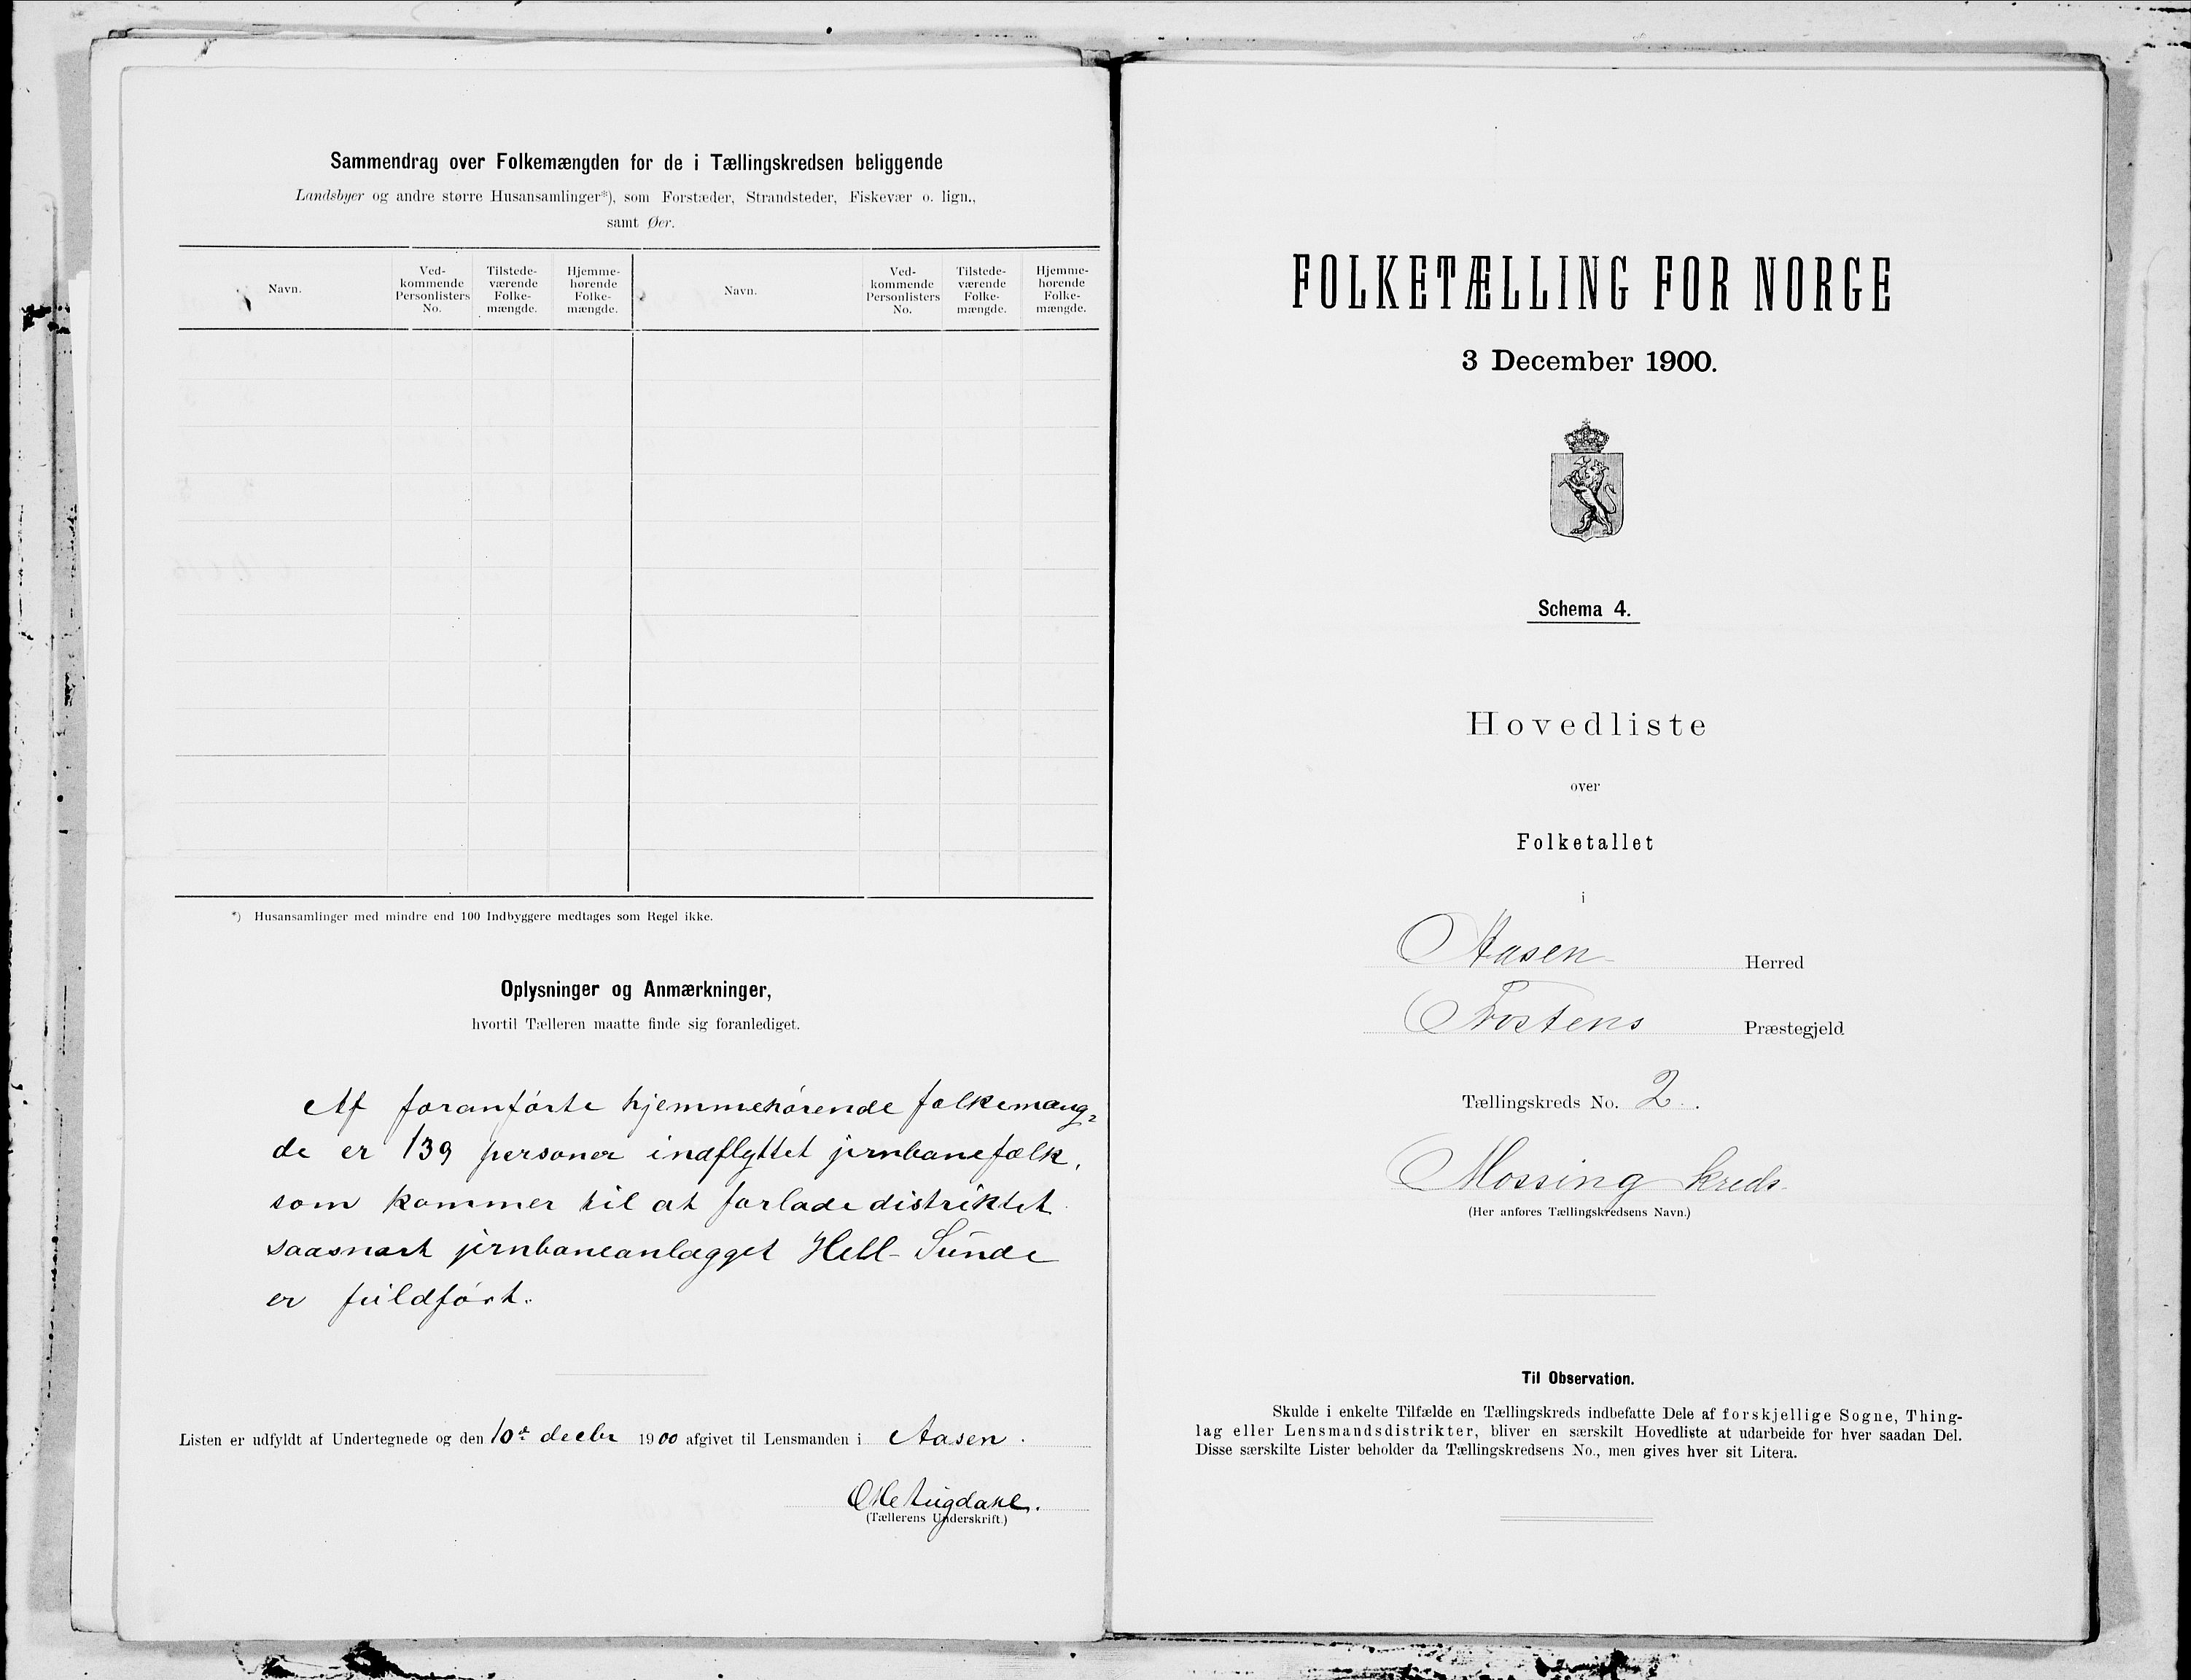 Sammendrag over Folkemængden for de i Tællingskredsen beliggende
Landsbyer og andre større Husansamlinger*), som Forstæder, Strandsteder, Fiskevær o. lign.,
samt Øer.
Navn.
Ved-
kommende
Personlisters
No.
Tilstede-
værende
Folke-
mængde.
Hjemme-
hørende
Folke-
mængde.
Navn.
Ved-
kommende
Personlisters
No.
Tilstede-
værende
Folke-
mængde.
Hjemme-
hørende
Folke-
mængde.
*) Husansamlinger med mindre end 100 Indbyggere medtages som Regel ikke.
Oplysninger og Anmærkninger,
hvortil Tælleren maatte finde sig foranlediget.
Af foranførte hjemmehørende folkemæng-
de er 139 personer indflyttet jernbanefolk,
som kommer til at forlade distriktet
saasnart jernbaneanlægget Hell-Sunde
er fuldført.
Listen er udfyldt af Undertegnede og den 10de decbr 1900 afgivet til Lensmanden i Aasen.
Ole Augdahl.
(Tællerens Underskrift.)
FOLKETÆLLING FOR NORGE
3 December 1900.
Schema 4.
Hovedliste
over
Folketallet
i
Aasen Herred
Frostens Præstegjeld
Tællingskreds No. 2.
Mossing kreds
(Her anføres Tællingskredsens Navn.)
Til Observation.
Skulde i enkelte Tilfælde en Tællingskreds indbefatte Dele af forskjellige Sogne, Thing-
lag eller Lensmandsdistrikter, bliver en særskilt Hovedliste at udarbeide for hver saadan Del.
Disse særskilte Lister beholder da Tællingskredsens No., men gives hver sit Litera.